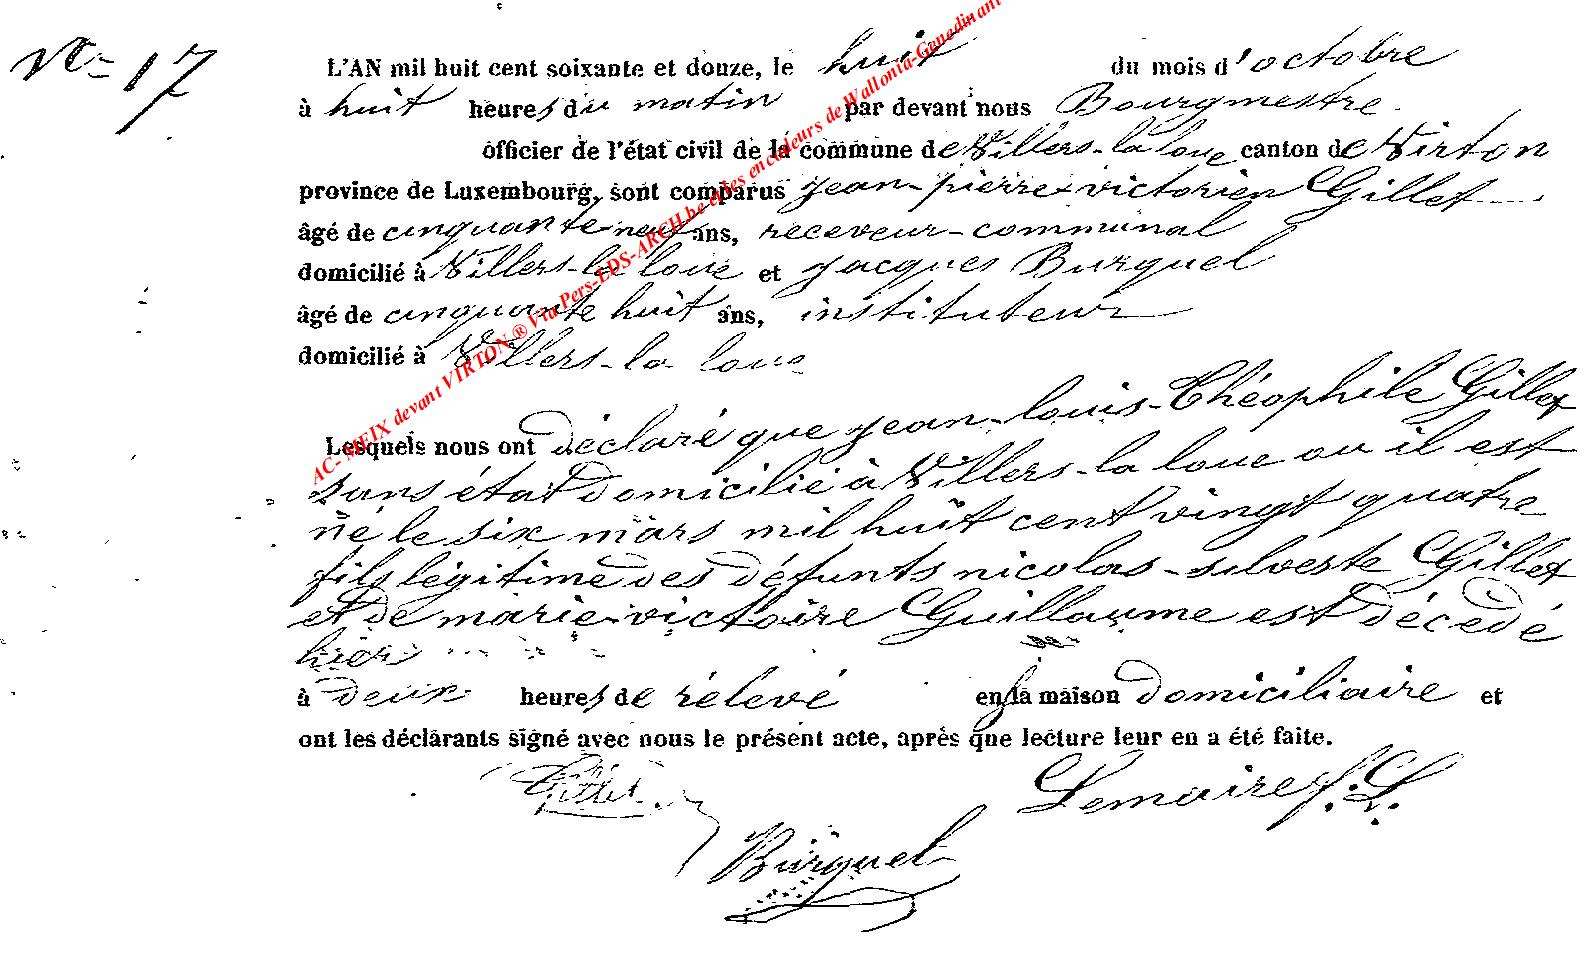 N° 17
L'AN mil huit cent soixante et douze, le huit du mois d'octobre
à huit heures du matin par devant nous Bourgmestre
officier de l'état civil de la commune de Villers-la loue canton de Virton
province de Luxembourg, sont comparus jean-pierre-victorien Gillet
âgé de cinquante neuf ans, receveur-communal
domicilié à Villers-la loue et jacques Burquel
âgé de cinquante huit ans, instituteur
domicilié à Villers-la loue
Lesquels nous ont déclaré que jean-louis-Théophile Gillet
sans état domicilié à Villers-la loue ou il est
né le six mars mil huit cent vingt quatre
fils légitime des défunts nicolas-silveste Gillet
et de marie-victoire Guillaume est décédé
hier
à deux heures de rélevé en la maison domiciliaire et
ont les déclarants signé avec nous le présent acte, après que lecture leur en a été faite.
Gillet
Lemaire f. L.
Burquel
AC- MEIX devant VIRTON ® Via Pers-LDS-ARCH.be et les encodeurs de Wallonia-Genedinant